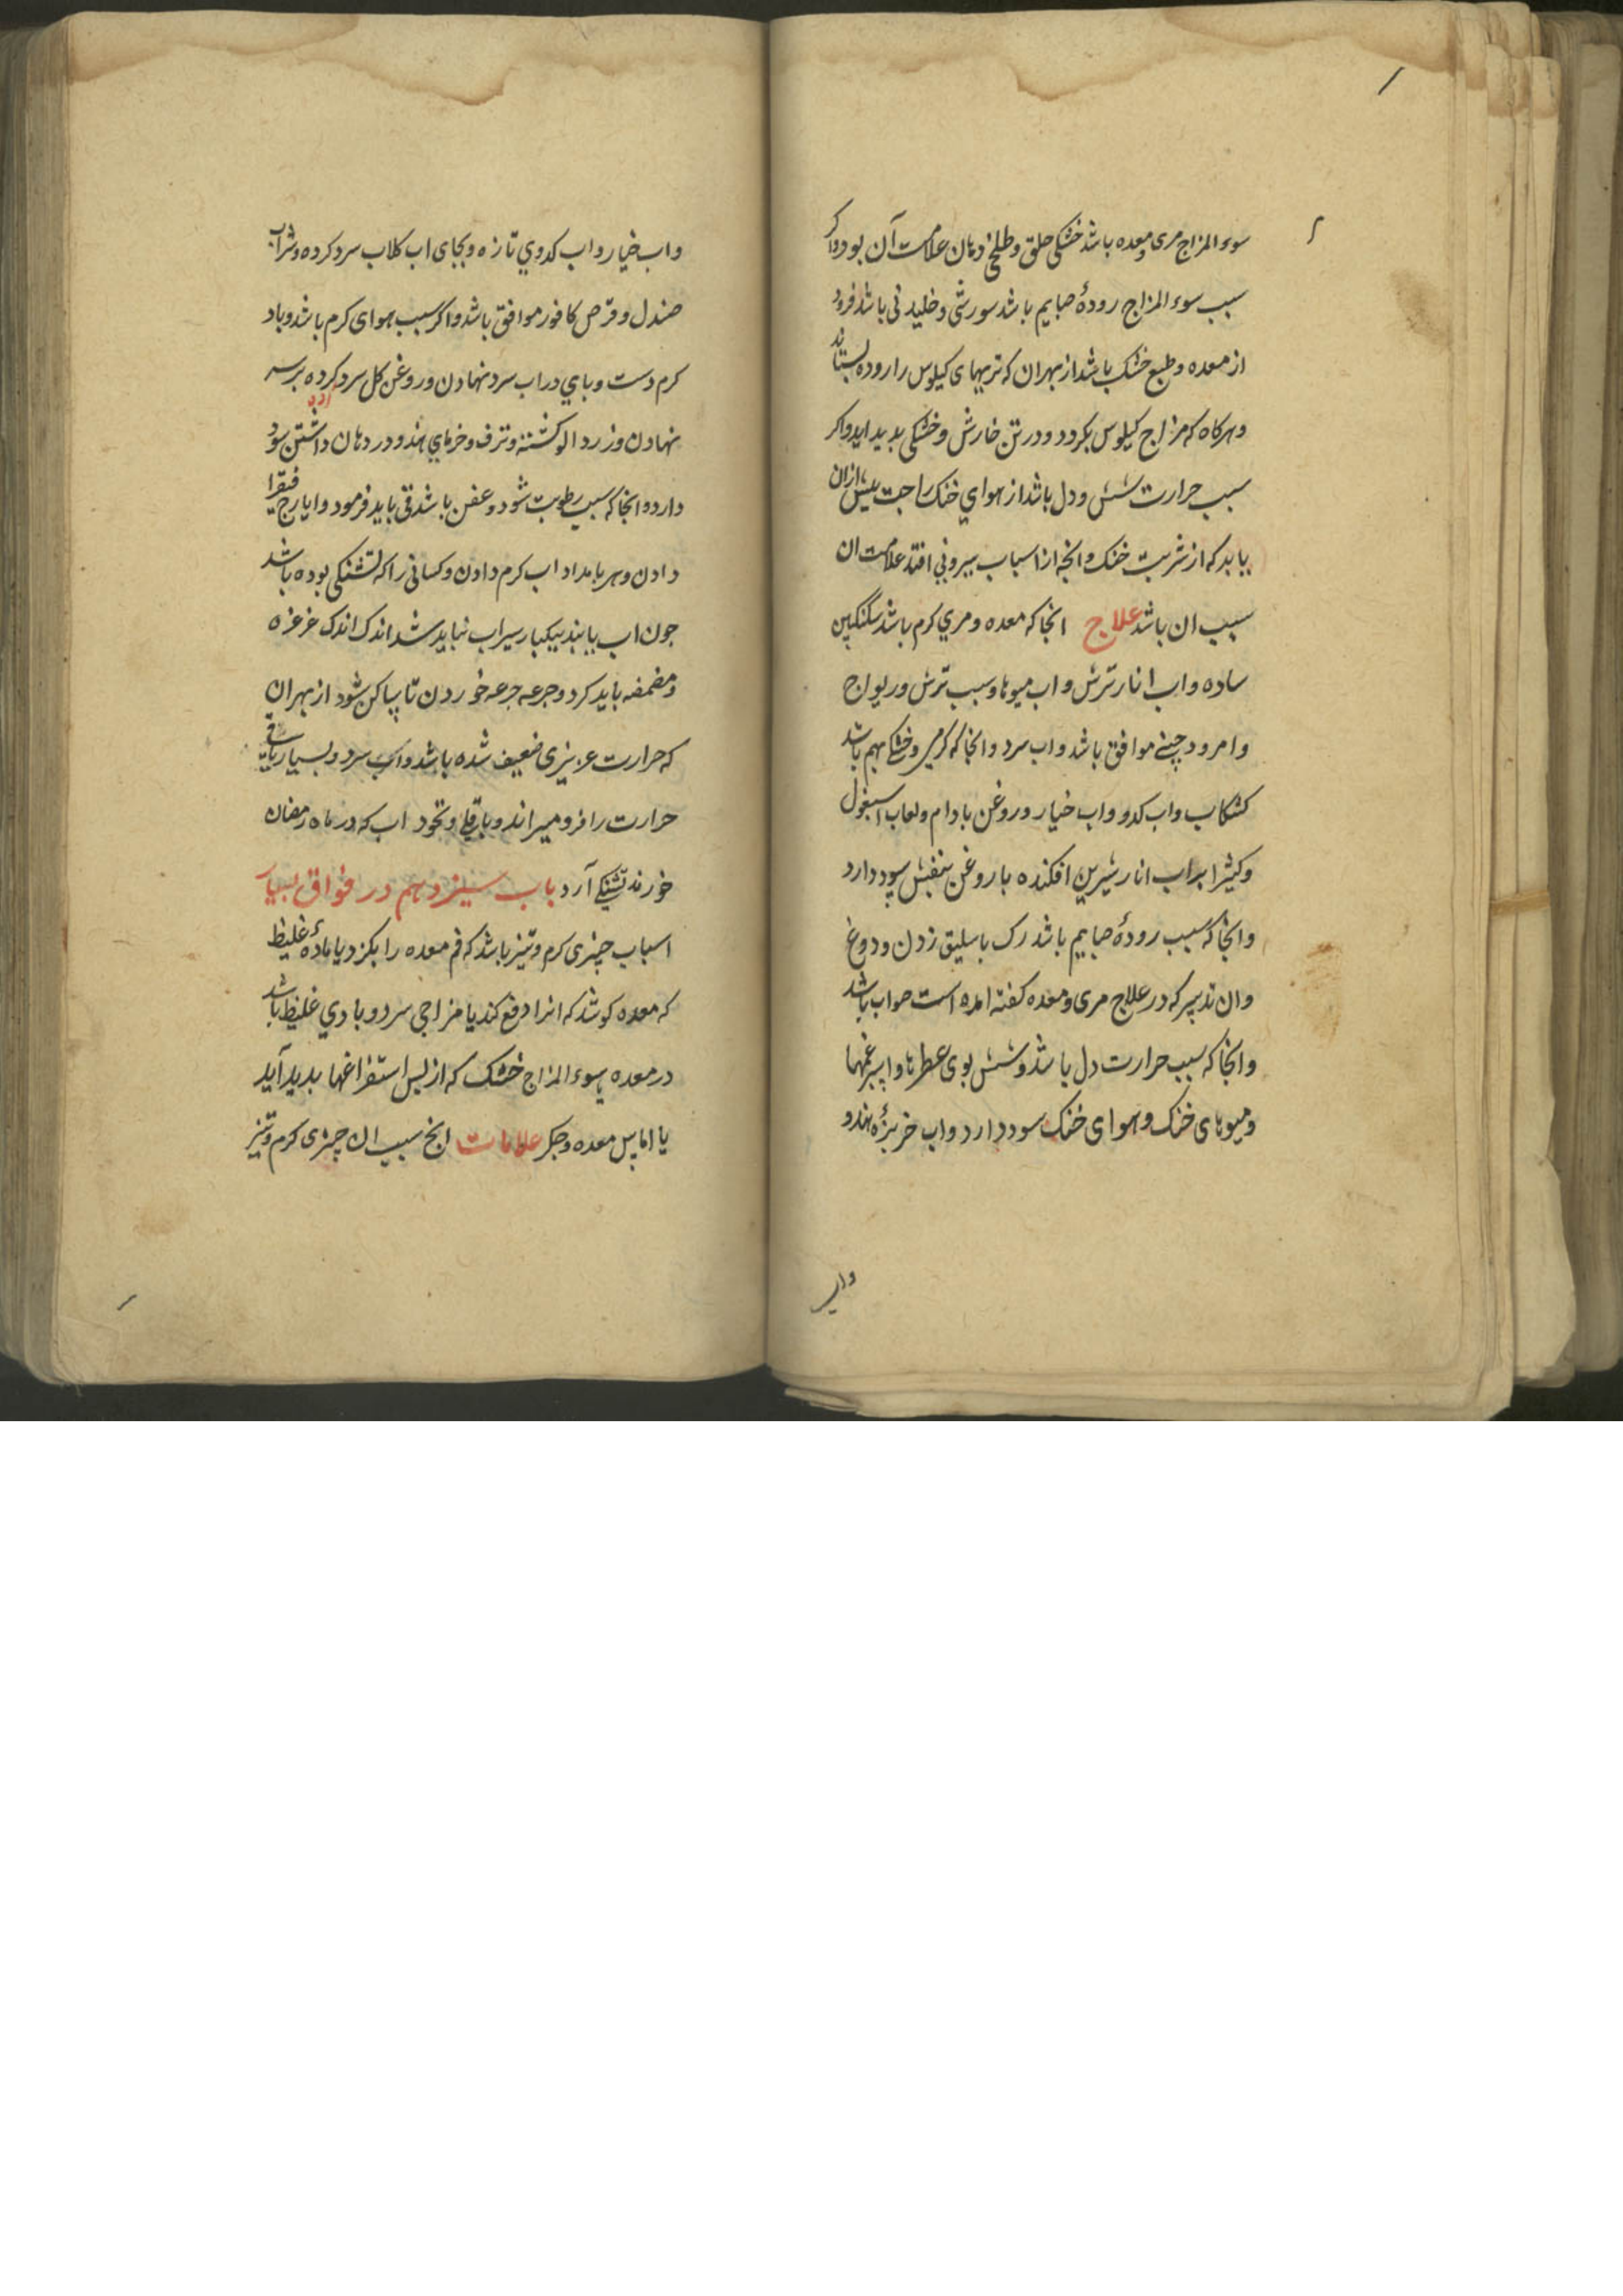 سوء المزاج مری و معده باشد خشکی حلق و طلخی دهان علامت آن بود و اکر
سبب سوء المزاج رودهٔ صایم باشد سوزشی و خلیدنی باشد فرود
از معده و طبع خشک باشد از بهران که تریهای کیلوس را روده بستاند
و هرکاه که مزاج کیلوس بکردد و در تن خارش و خشکی بدید اید و اکر
سبب حرارت شش و دل باشد از هوای خنک راحت بیش ازان
یابد که از شربت خنک و انچه از اسباب بیرونی افتد علامت ان
سبب ان باشد علاج انجا که معده و مری کرم باشد سکنکبین
ساده و اب انار ترش و اب میوها و سیب ترش و ریواج
و امرود چینی موافق باشد و اب سرد و انجا که کرمی و خشکی بهم باشد
کشکاب و اب کدو و اب خیار و روغن بادام و لعاب اسبغول
و کثیرا بر اب انار شیرین افکنده با روغن بنفش سود دارد
و انجا که سبب رودهٔ صایم باشد رک باسلیق زدن و دوغ
و ان تدبیر که در علاج مری و معده کفته امده است صواب باشد
و انجا که سبب حرارت دل باشد و شش بوی عطرها و اسپرغمها
و میوهای خنک و هوای خنک سود دارد و اب خربزهٔ هندو
واب
واب خیار و اب کدوی تازه و بجای اب کلاب سرد کرده و شراب
صندل و قرص کافور موافق باشد و اکر سبب هوای کرم باشد و باد
کرم دست و پای در اب سرد نهادن و روغن کل سرد کرده بر سر
نهادن و زرد الو کشته و ترف و خرمای هندو در دهان داشتن سود
دارد و انجا که سبب رطوبت شود و عفن باشد قی باید فرمود و ایارج فیقرا
دادن و هر بامداد اب کرم دادن و کسانی را که تشنکی بوده باشد
جون اب یابند بیکبار سیراب نباید شد اندک اندک غرغره
و مضمضه باید کرد و جرعه جرعه خوردن تا ساکن شود از بهران
که حرارت عزیزی ضعیف شده باشد و اب سرد و بسیار باقی
حرارت را فرو میراند و باقلی و نخود اب که در ماه رمضان
خورند تشنکی آرد باب سیزدهم در فواق بسیار
اسباب چیزی کرم و تیز باشد که فم معده را بکزد یا مادهٔ غلیظ
که معده کوشد که انرا دفع کند یا مزاجی سرد و بادی غلیظ باشد
در معده یا سوء المزاج خشک که از پس استفراغها بدید آید
یا اماس معده و جکر علامات انچ سبب ان چیزی کرم و تیز